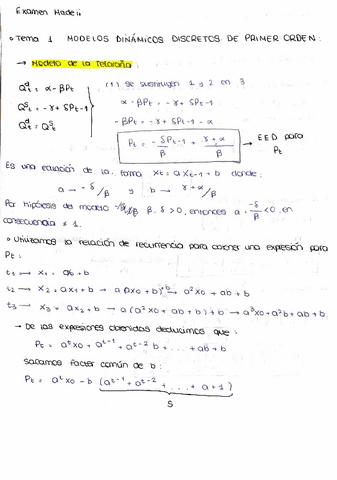 Examen Made ii
• Tema 1 MODELOS DINÁMICOS DISCRETOS DE PRIMER ORDEN:
→ Modelo de la Telaraña:
Qᵈt = α - βPt
Qˢt = -γ + δPt-1
Qᵈt = Qˢt
(1) se sustituyen 1 y 2 en 3
α - βPt = -γ + δPt-1
-βPt = -γ + δPt-1 - α
Pt = -δPt-1/β + γ+α/β → EED para Pt
Es una ecuación de la forma xt = axt-1 + b donde:
a → -δ/β y b → γ+α/β
Por hipótesis del modelo β, δ > 0, entonces a = -δ/β < 0, en
consecuencia ≠ 1.
• Utilizamos la relación de recurrencia para obtener una expresión para
Pt:
t1 → x1 = ax0 + b
t2 → x2 = ax1 + b → a(ax0 + b) + b → a²x0 + ab + b
t3 → x3 = ax2 + b → a(a²x0 + ab + b) + b → a³x0 + a²b + ab + b
→ De las expresiones obtenidas deducimos que:
Pt = aᵗx0 + aᵗ⁻¹ + aᵗ⁻² b + ... + ab + b
sacamos factor común de b:
Pt = aᵗx0 - b (aᵗ⁻¹ + aᵗ⁻² + ... + a + 1)
S